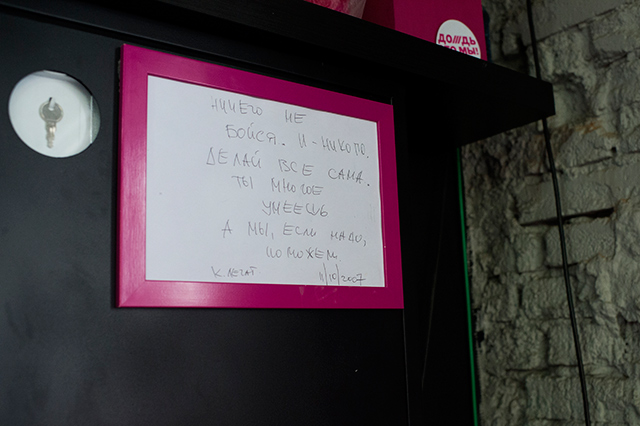 ДОЖДЬ
ЭТО МЫ!
НИЧЕГО НЕ
БОЙСЯ. И - НИКОГО.
ДЕЛАЙ ВСЕ САМА.
ТЫ МНОГОЕ
УМЕЕШЬ
А МЫ, ЕСЛИ НАДО,
ПОМОЖЕМ
11/10/2007